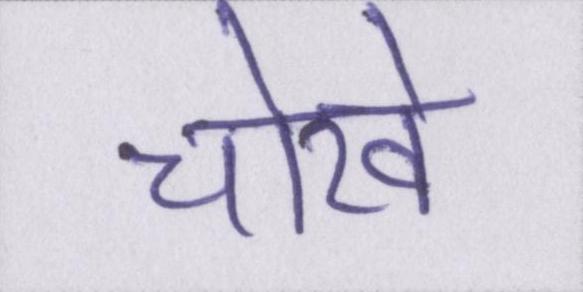 चोखे